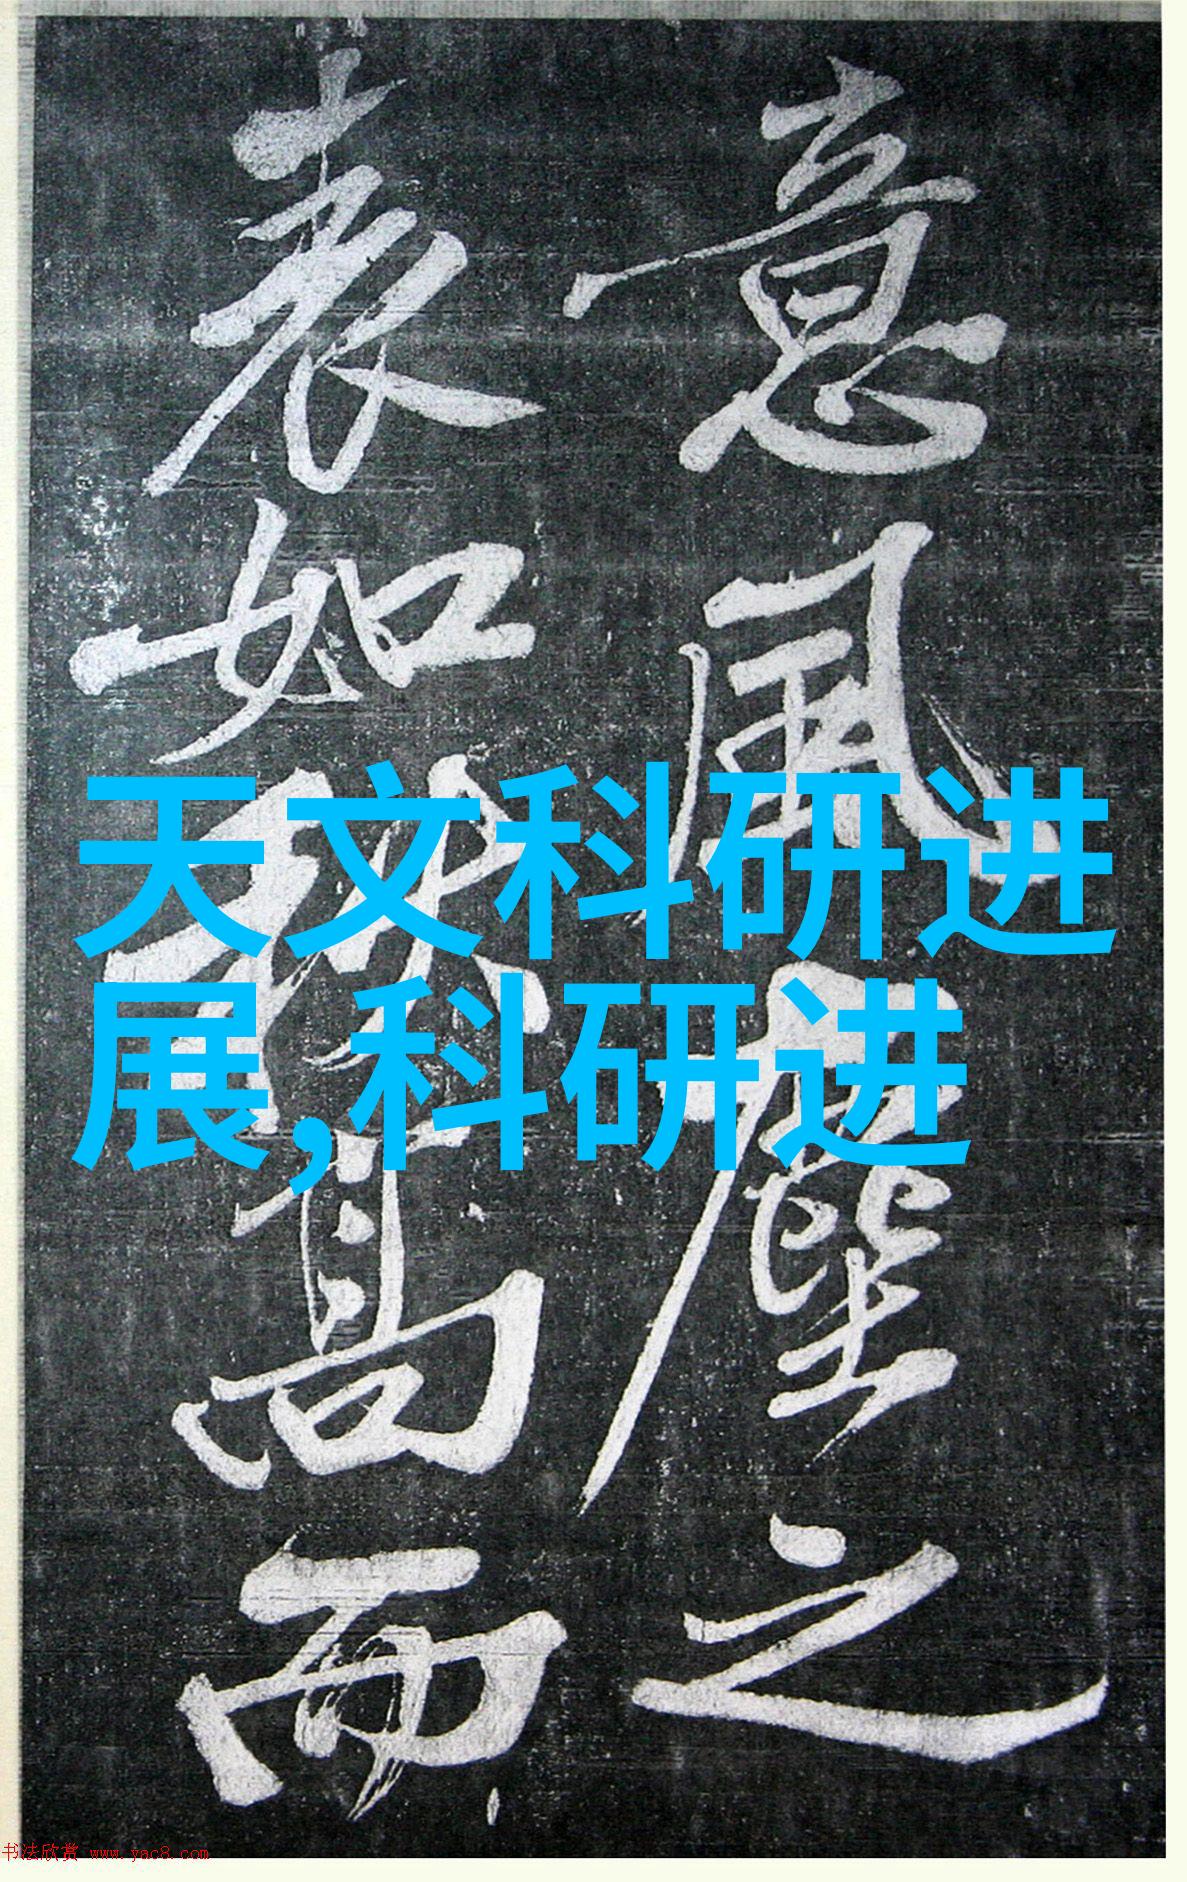 意風塵之
表如秋高而
天文科研进
展,科研进
书法欣赏 www.yac8.com